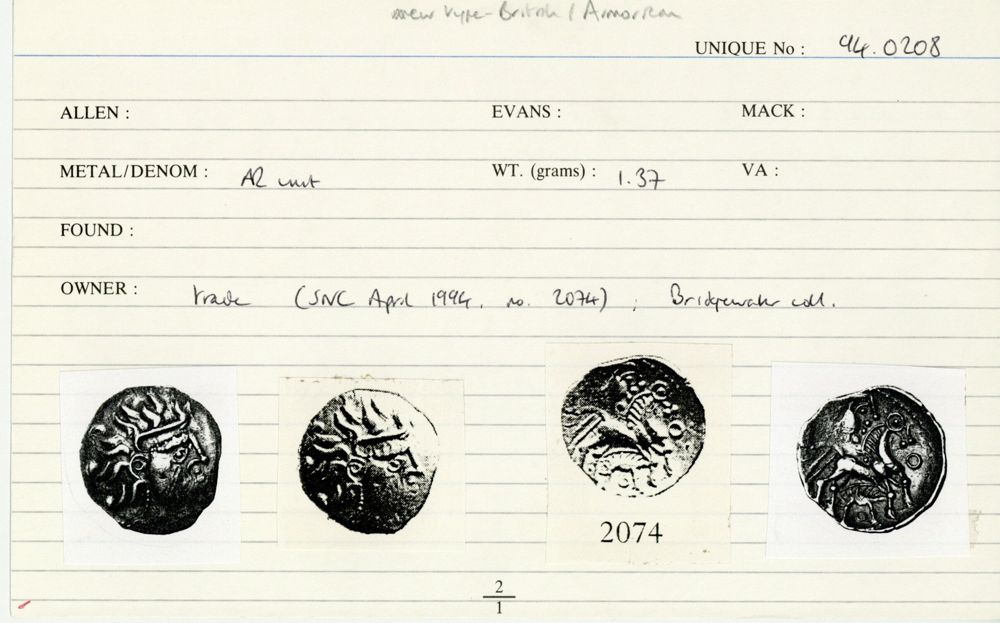 new type - British / Armorican
UNIQUE No : 94.0208
ALLEN : EVANS : MACK :
METAL/DENOM : AR unit WT. (grams) : 1.37 VA :
FOUND :
OWNER : trade (SNC April 1994, no. 2074) ; Bridgewater coll.
2074
2
1